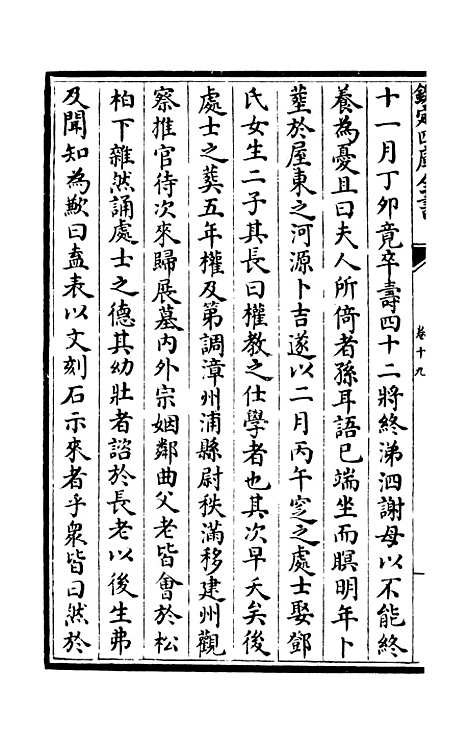 欽定四庫全書
卷十九
十一月丁卯竟卒壽四十二將終涕泗謝母以不能終
養為憂且曰夫人所倚者孫耳語已端坐而瞑明年卜
塟於屋東之河源卜吉遂以二月丙午窆之處士娶鄧
氏女生二子其長曰權教之仕學者也其次早夭矣後
處士之葬五年權及第調漳州浦縣尉秩滿移建州觀
察推官待次來歸展墓内外宗姻鄰曲父老皆會於松
柏下雜然誦處士之德其幼壯者諮於長老以後生弗
及聞知為歉曰盍表以文刻石示來者乎衆皆曰然於